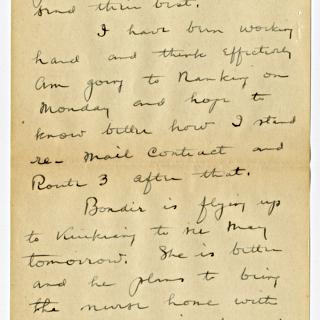 send their best.
I have been working
hard and think effectively
Am going to Nanking on
Monday and hope to
know better how I stand
re- Mail Contract and
Route 3 after that.
Bondir is flying up
to Kiukiang to see May
tomorrow. She is better
and he plans to bring
the nurse home with